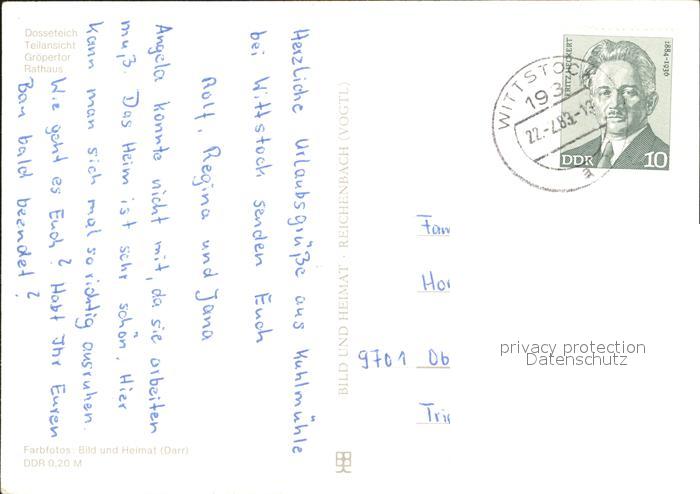 Dosseteich
Teilansicht
Gröpertor
Rathaus
Herzliche Urlaubsgrüße aus Kuhlmühle
bei Wittstock senden Euch
Rolf, Regina und Jana
Angela konnte nicht mit, da sie arbeiten
muß. Das Heim ist sehr schön. Hier
kann man sich mal so richtig ausruhen.
Wie geht es Euch? Habt Ihr Euren
Bau bald beendet?
Farbfotos: Bild und Heimat (Darr)
DDR 0,20 M
BILD UND HEIMAT · REICHENBACH (VOGTL)
WITTSTOCK
193
22.-7.83.-1
a
FRITZ HECKERT
1884-1936
DDR 10
Fam
Hor
9701 Ob
Tri
privacy protection
Datenschutz